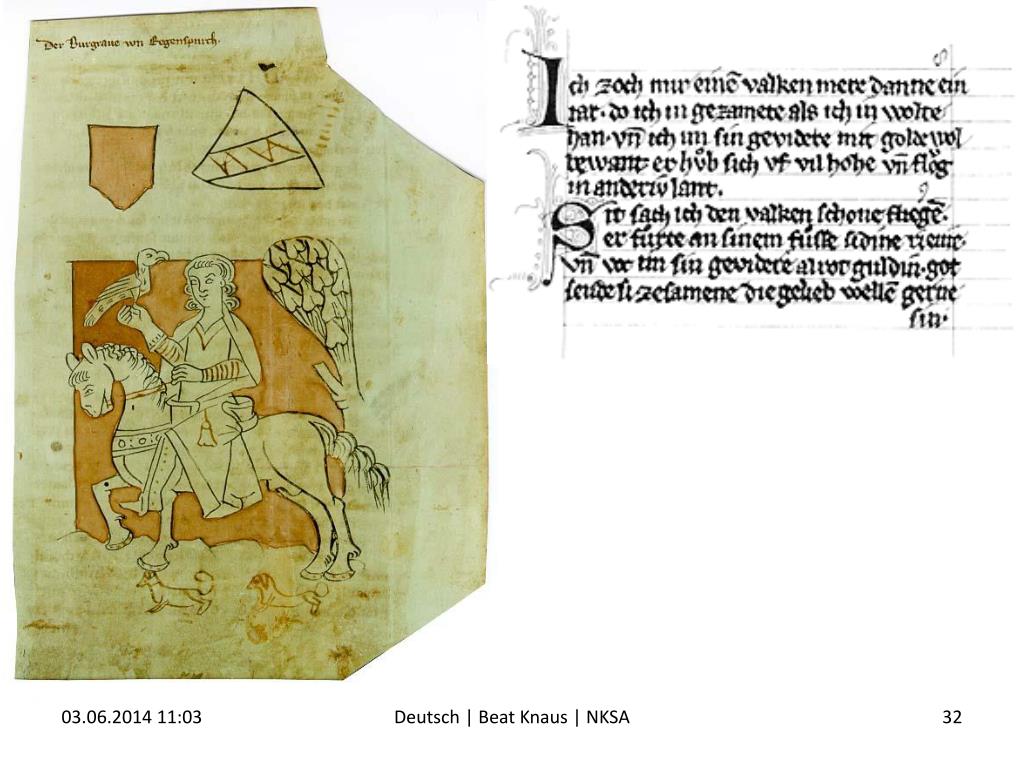 Der Burgraue von Regenspurch.
Ich zoch mir einē valken mere danne ein
iar· do ich in gezamete als ich in wolte
han· vn̄ ich im sin gevidere mit golde wol
bewant er hůb sich vf vil hohe vn̄ flǒg
in anderiv lant.
Sit sach ich den valken schone fliegē·
er fůrte an sinem fůsse sidine rieme·
vn̄ was im sin gevidere alrot guldin· got
sende si zesamene die gelieb wellē gerne
sin·
03.06.2014 11:03 Deutsch | Beat Knaus | NKSA 32